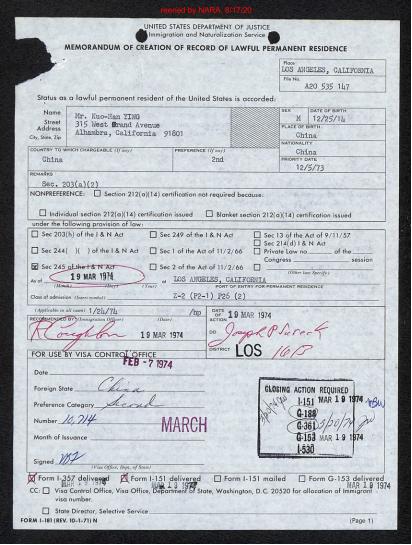 reened by NARA, 8/17/20
UNITED STATES DEPARTMENT OF JUSTICE
Immigration and Naturalization Service
MEMORANDUM OF CREATION OF RECORD OF LAWFUL PERMANENT RESIDENCE
Place
LOS ANGELES, CALIFORNIA
File No.
A20 535 147
Status as a lawful permanent resident of the United States is accorded:
Name Mr. Kuo-Han YING
Street Address 315 West Grand Avenue
City, State, Zip Alhambra, California 91801
SEX M
DATE OF BIRTH 12/25/14
PLACE OF BIRTH
China
NATIONALITY
China
COUNTRY TO WHICH CHARGEABLE (If any)
China
PREFERENCE (If any)
2nd
PRIORITY DATE
12/5/73
REMARKS
Sec. 203(a)(2)
NONPREFERENCE: Section 212(a)(14) certification not required because:
Individual section 212(a)(14) certification issued Blanket section 212(a)(14) certification issued
under the following provision of law:
Sec 203(h) of the I & N Act Sec 249 of the I & N Act Sec 13 of the Act of 9/11/57
Sec 214(d) I & N Act
Sec 244( )( ) of the I & N Act Sec 1 of the Act of 11/2/66 Private Law no of the
Congress session
Sec 245 of the I & N Act Sec 2 of the Act of 11/2/66
(Other law Specify)
As of 19 MAR 1974 at LOS ANGELES, CALIFORNIA
(Month) (Day) (Year) PORT OF ENTRY FOR PERMANENT RESIDENCE
Class of admission (Insert symbol)
(Applicable in all cases) 1/24/74 /bp
RECOMMENDED BY (Immigration Officer) (Date)
19 MAR 1974
DATE OF ACTION 19 MAR 1974
DD
DISTRICT LOS
FOR USE BY VISA CONTROL OFFICE
FEB -7 1974
Date
Foreign State China
Preference Category Second
Number 10,714
MARCH
Month of Issuance
Signed
(Visa Office, Dept. of State)
CLOSING ACTION REQUIRED
I-151 MAR 19 1974
G-188
G-361
G-153 MAR 19 1974
I-530
Form I-357 delivered Form I-151 delivered Form I-151 mailed Form G-153 delivered
MAR 19 1974
CC: Visa Control Office, Visa Office, Department of State, Washington, D.C. 20520 for allocation of immigrant visa number.
State Director, Selective Service
FORM I-181 (REV. 10-1-71) N (Page 1)